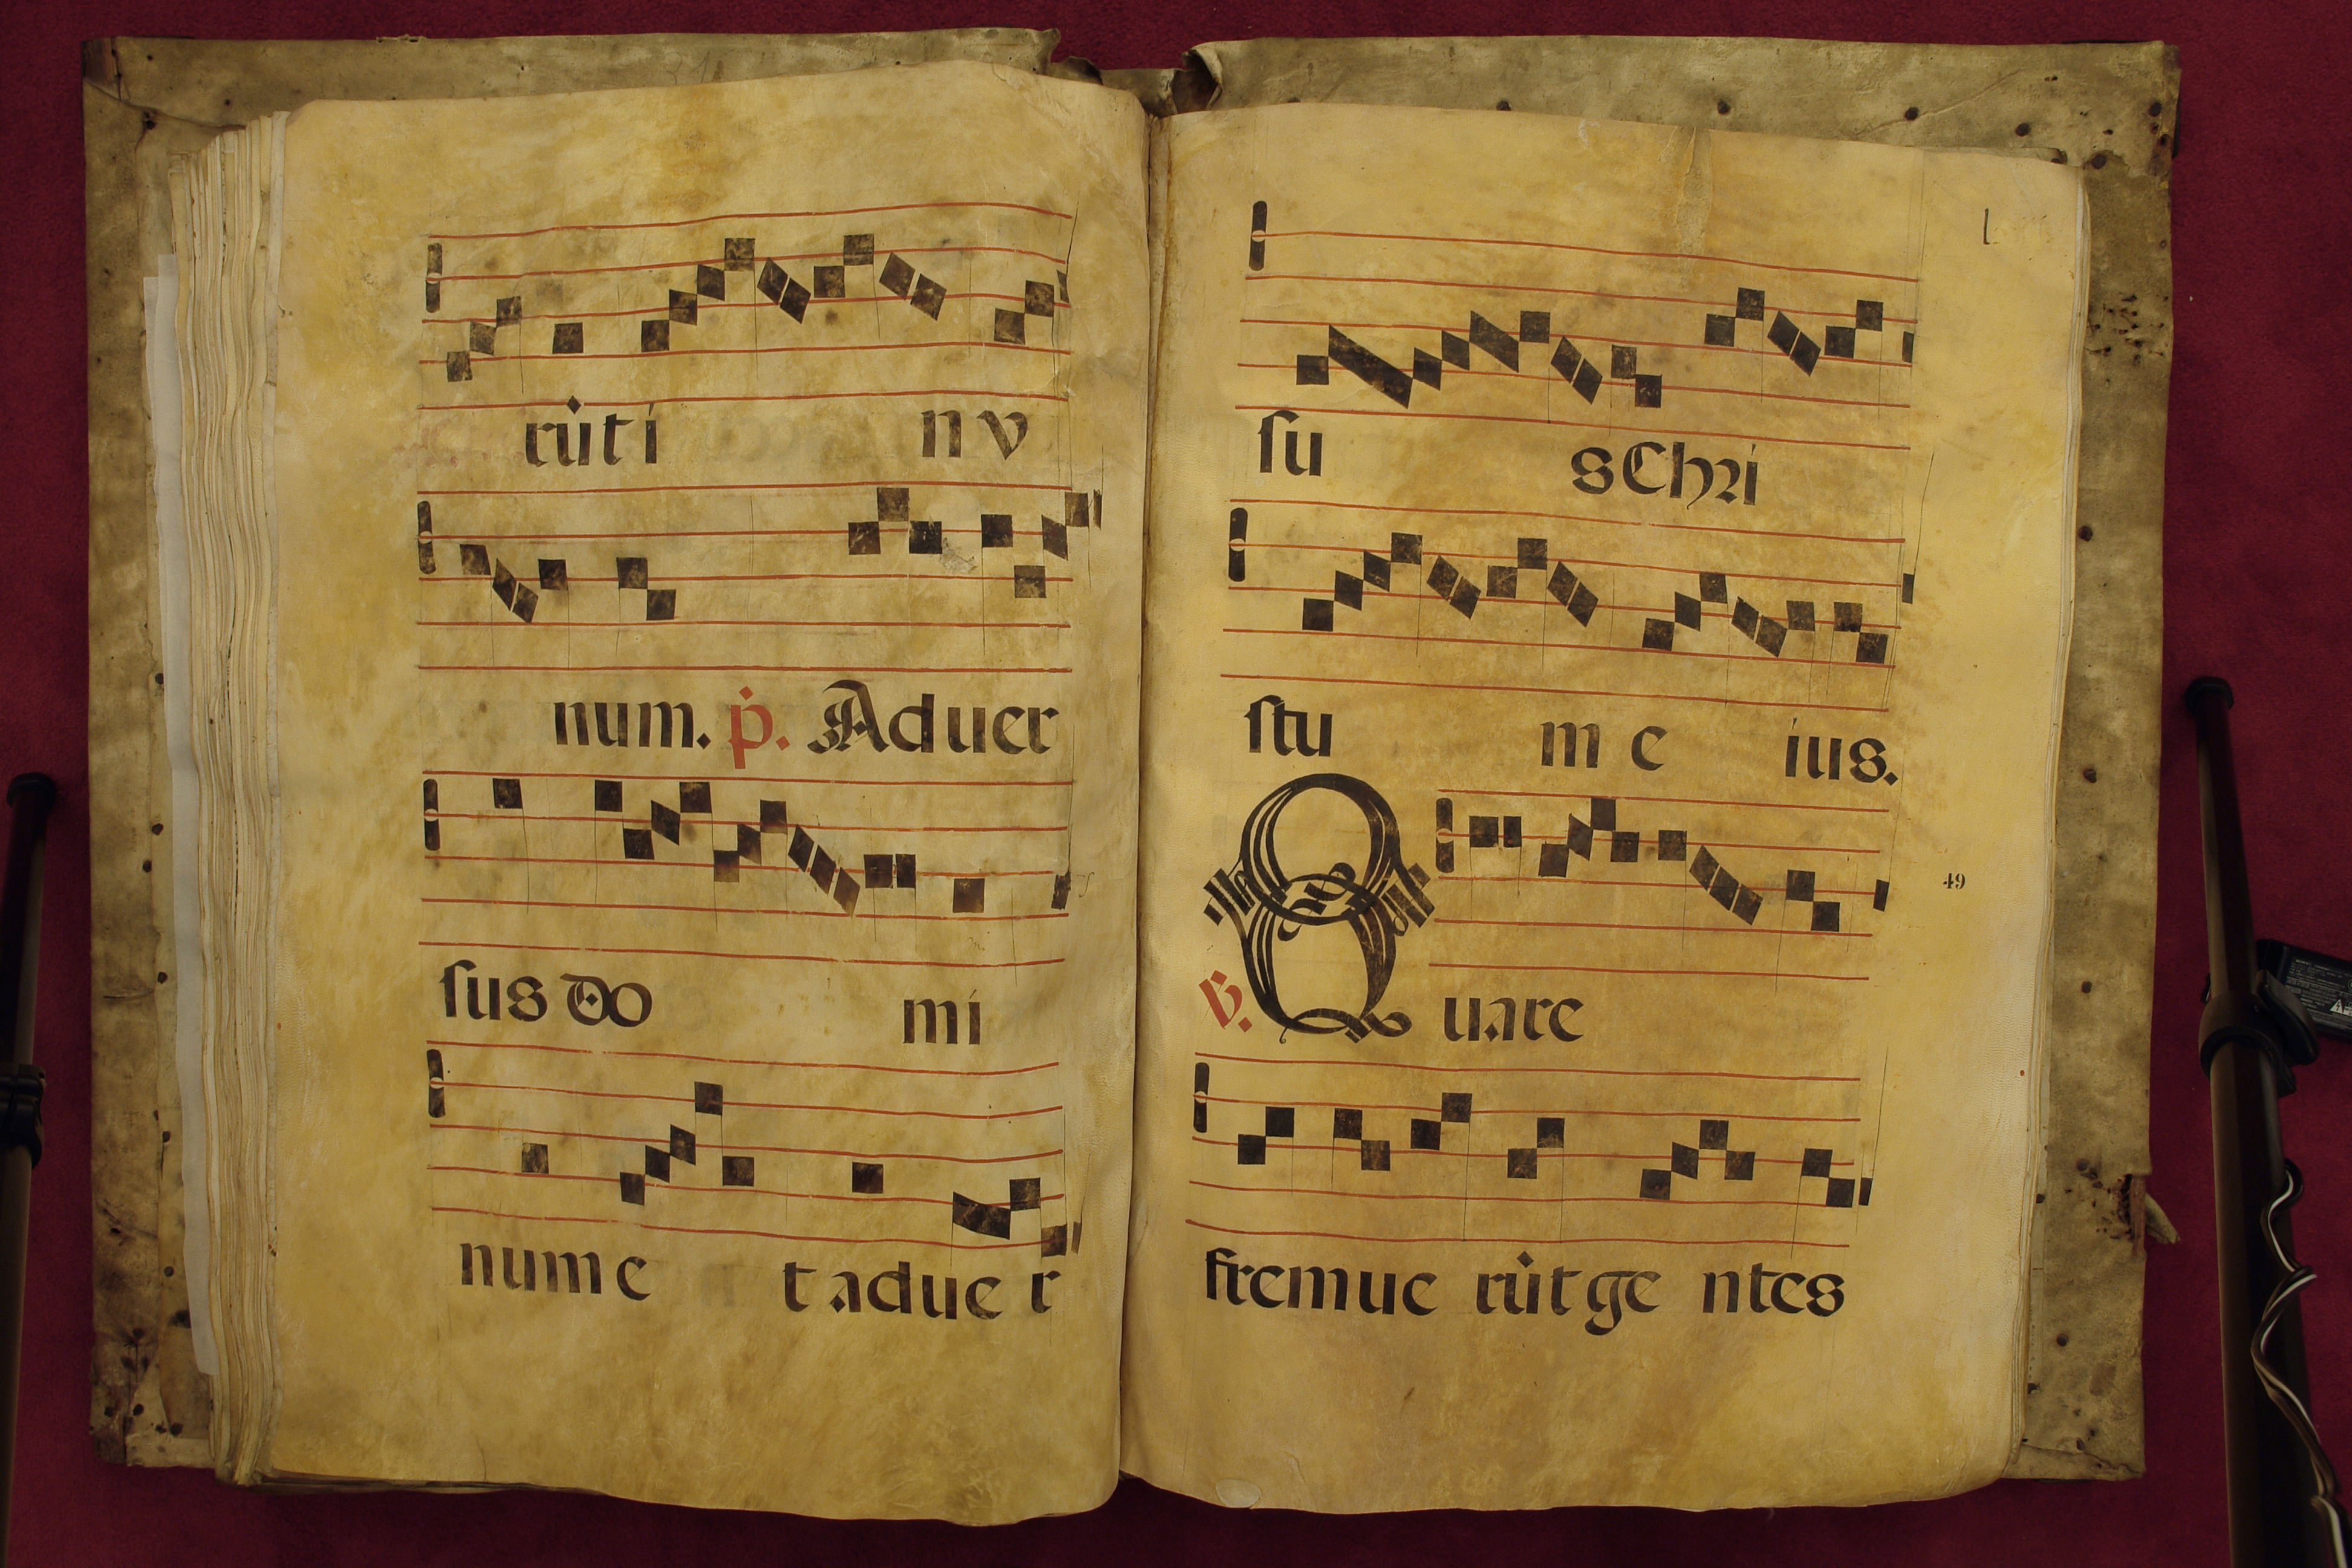 rũti nv
num. p̃. Aduer
ſus do mi
num e t adue r
ſu s Chri
ſtu m e ius.
49
ṽ. Quare
fremue rũt ge ntes